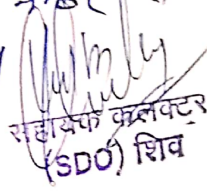 सहायक कलक्टर
(SDO) शिव